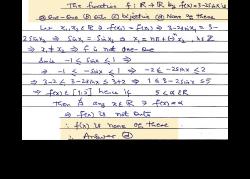 The function f : R → R by f(x) = 3-2sinx is
ⓐ One-One ⓑ onto ⓒ Bijective ⓓ None of these
Let x₁, x₂ ∈ R ∋ f(x₁) = f(x₂) ⇒ 3-2sinx₁ = 3-
2sinx₂ ⇒ sinx₁ = sinx₂ ⇒ x₁ = nπ+(-1)ⁿx₂, n∈Z
⇒ x₁ ≠ x₂ ⇒ f is not one-one
Since -1 ≤ sinx ≤ 1 ⇒
⇒ -1 ≤ -sinx ≤ 1 ⇒ -2 ≤ -2sinx ≤ 2
⇒ 3-2 ≤ 3-2sinx ≤ 3+2 ⇒ 1 ≤ 3-2sinx ≤ 5
⇒ f(x) ∈ [1,5] hence if 5 < α ∈ R
Then ∄ any x∈R ∋ f(x) = α
⇒ f(x) is not onto
∴ f(x) is none of these
∴ Answer ⓓ